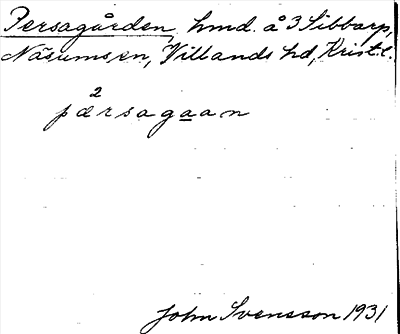 Persagården, hmd. å 3 Sibbarp,
Näsums sn, Villands hd, Krist. l.
2
pærsagaan
John Svensson 1931